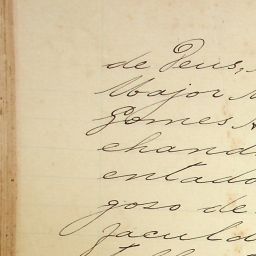 de Deus,
Major M
Gomes A
chand
entado
goso de
faculd